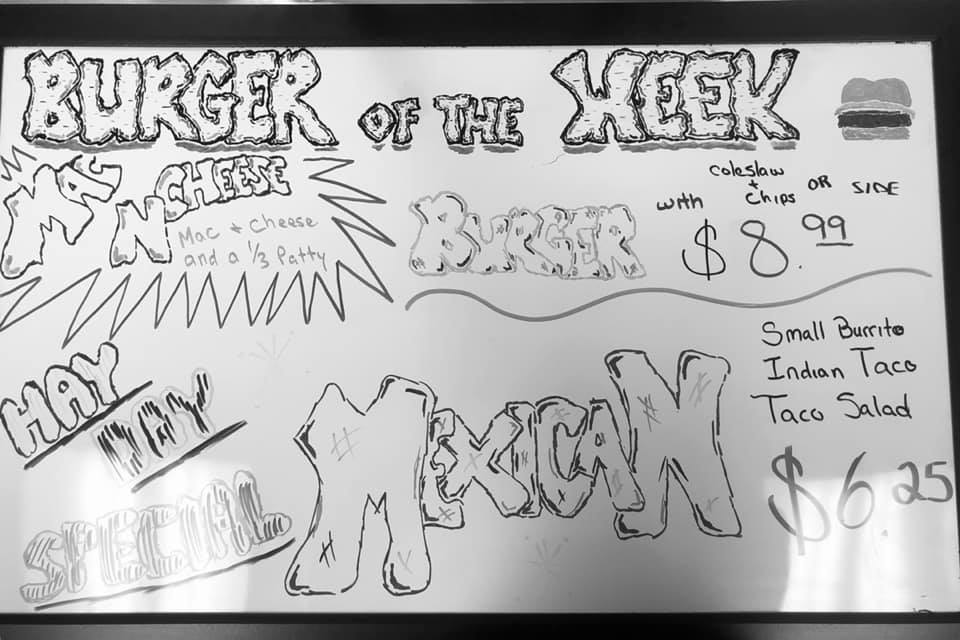 BURGER OF THE WEEK
MAC N CHEESE
Mac + Cheese
and a 1/3 Patty
BURGER
with coleslaw + Chips OR SIDE
$8.99
HAY DAY SPECIAL
MEXICAN
Small Burrito
Indian Taco
Taco Salad
$6.25